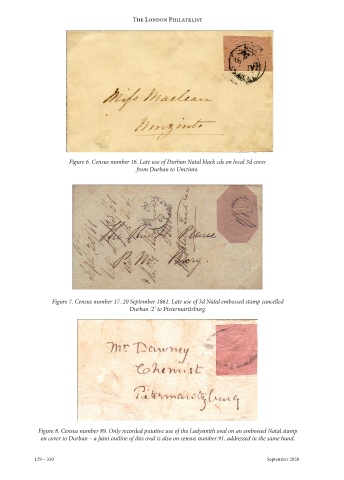 The London Philatelist
Miss Maclean
Umzinto
Figure 6. Census number 16. Late use of Durban Natal black cds on local 3d cover
from Durban to Umzinto.
Pearce
Figure 7. Census number 17. 20 September 1861. Late use of 3d Natal embossed stamp cancelled
Durban '2' to Pietermaritzburg.
Mr Dawney
Chemist
Pietermaritzburg
Figure 8. Census number 89. Only recorded putative use of the Ladysmith oval on an embossed Natal stamp
on cover to Durban – a faint outline of this oval is also on census number 91, addressed in the same hand.
129 – 330
September 2020